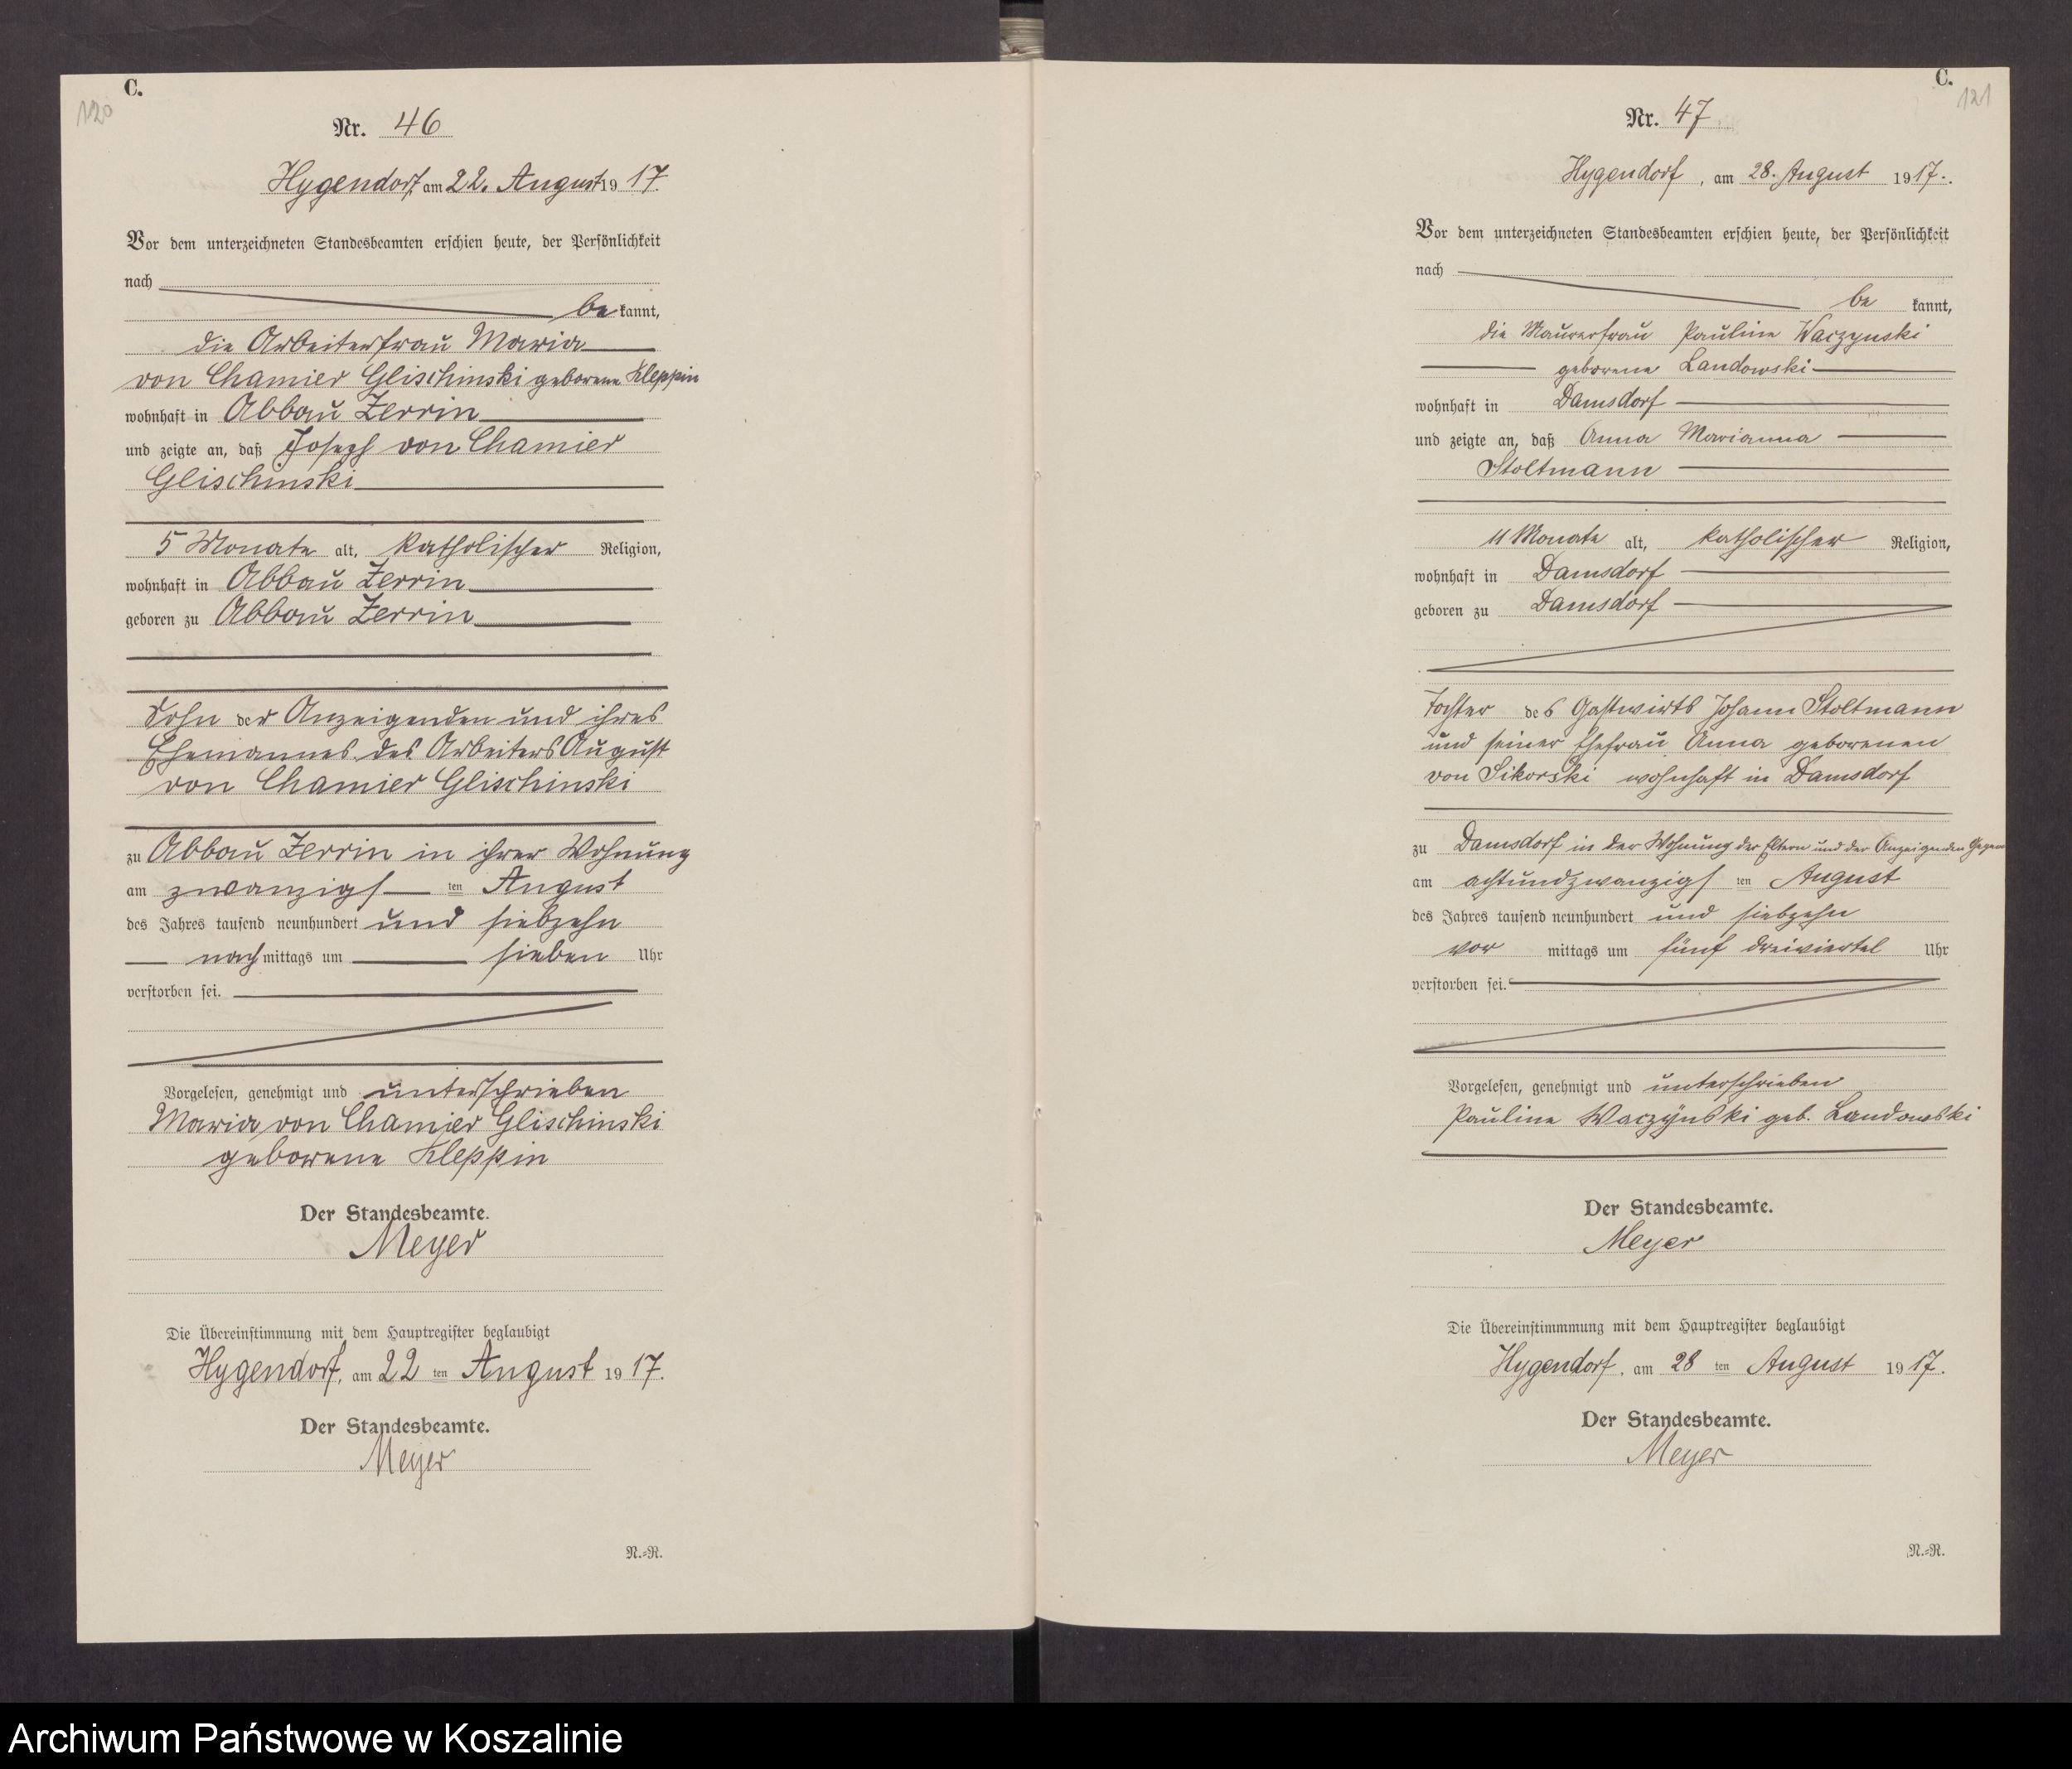 C.
120
Nr. 46
Hygendorf, am 22. August 1917.
Vor dem unterzeichneten Standesbeamten erschien heute, der Persönlichkeit
nach
be kannt,
die Arbeiterfrau Maria
von Chamier Glischinski geborene Kleppin
wohnhaft in Abbau Zerrin
und zeigte an, daß Joseph von Chamier
Glischinski
5 Monate alt, katholischer Religion,
wohnhaft in Abbau Zerrin
geboren zu Abbau Zerrin
Sohn der Anzeigenden und ihres
Ehemannes des Arbeiters August
von Chamier Glischinski
zu Abbau Zerrin in ihrer Wohnung
am zwanzigs ten August
des Jahres tausend neunhundert und siebzehn
nach mittags um sieben Uhr
verstorben sei.
Vorgelesen, genehmigt und unterschrieben
Maria von Chamier Glischinski
geborene Kleppin
Der Standesbeamte.
Meyer
Die Übereinstimmung mit dem Hauptregister beglaubigt
Hygendorf, am 22 ten August 1917.
Der Standesbeamte.
Meyer
N.=R.
C.
121
Nr. 47
Hygendorf, am 28. August 1917.
Vor dem unterzeichneten Standesbeamten erschien heute, der Persönlichkeit
nach
be kannt,
die Maurerfrau Pauline Waczynski
geborene Landowski
wohnhaft in Damsdorf
und zeigte an, daß Anna Marianna
Stoltmann
11 Monate alt, katholischer Religion,
wohnhaft in Damsdorf
geboren zu Damsdorf
Tochter des Gastwirts Johann Stoltmann
und seiner Ehefrau Anna geborenen
von Sikorski wohnhaft in Damsdorf
zu Damsdorf in der Wohnung der Eltern und der Anzeigenden Gegen
am achtundzwanzigs ten August
des Jahres tausend neunhundert und siebzehn
vor mittags um fünf dreiviertel Uhr
verstorben sei.
Vorgelesen, genehmigt und unterschrieben
Pauline Waczÿnski geb. Landowski
Der Standesbeamte.
Meyer
Die Übereinstimmmung mit dem Hauptregister beglaubigt
Hygendorf, am 28 ten August 1917.
Der Standesbeamte.
Meyer
N.=R.
Archiwum Państwowe w Koszalinie